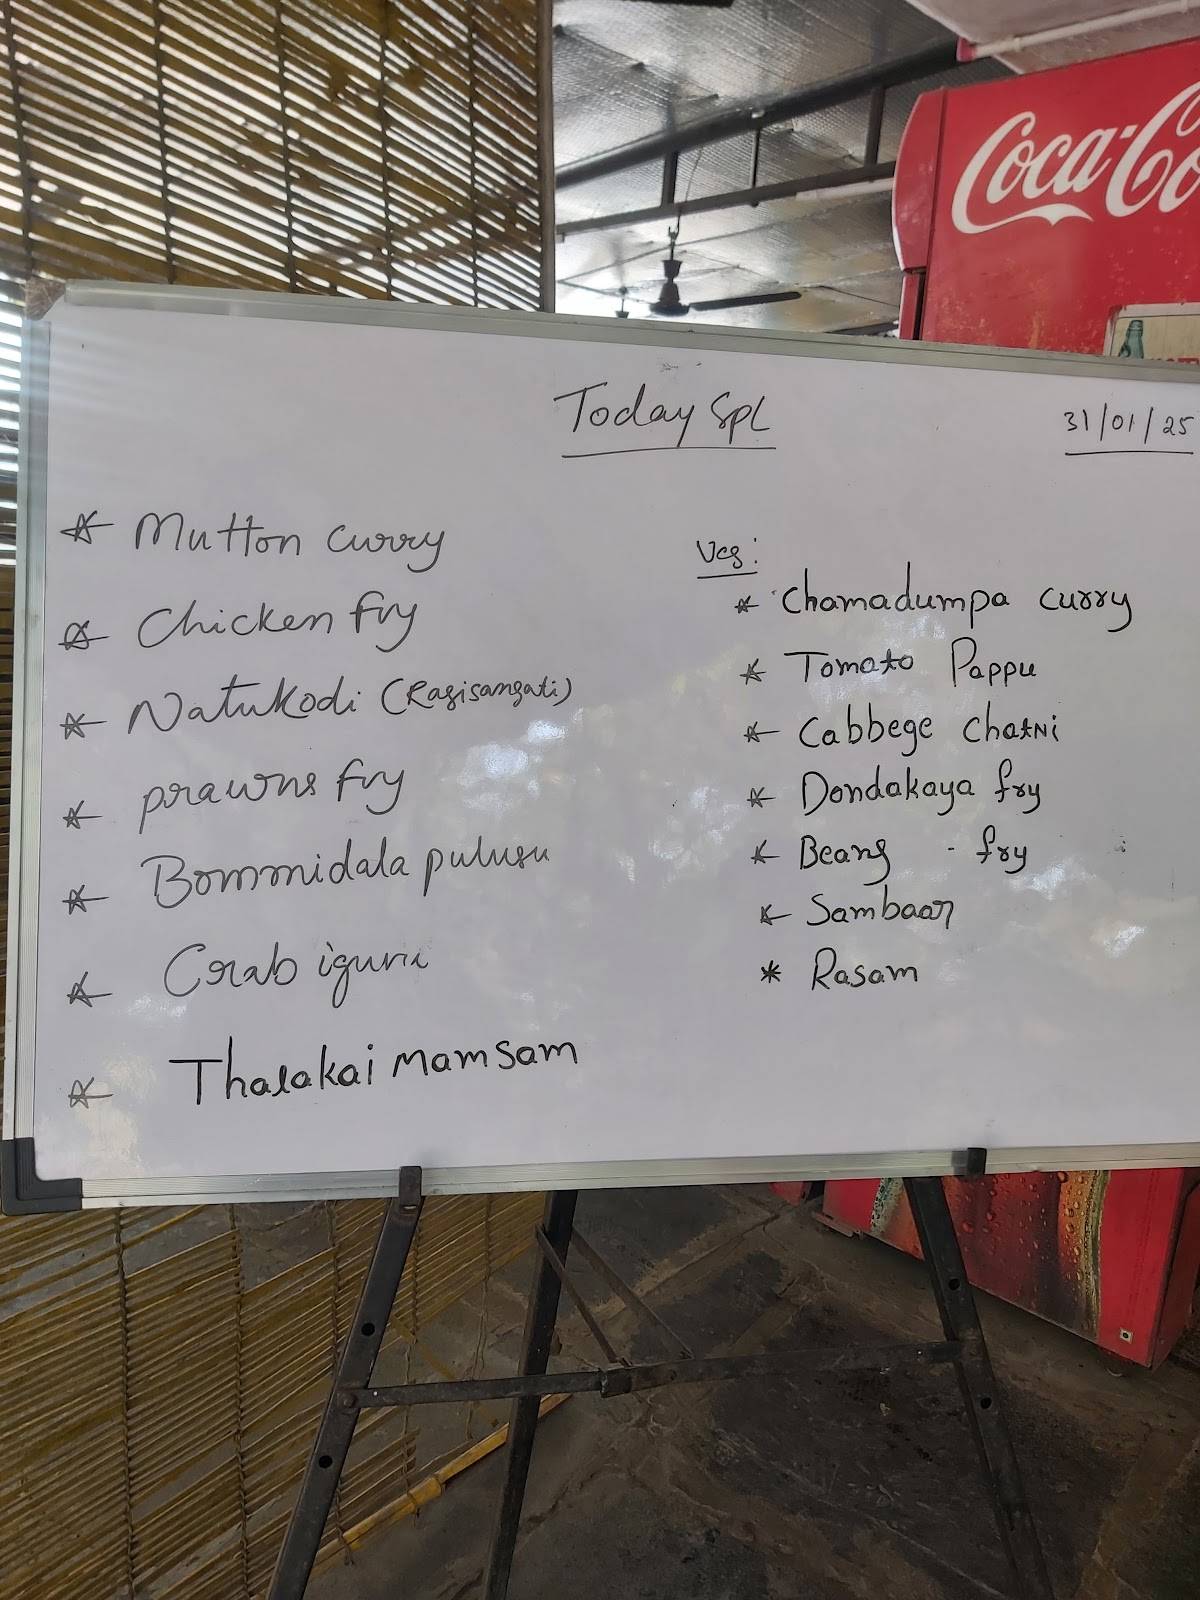 Coca-Co
Today Spl
31/01/25
* Mutton curry
* Chicken fry
* Natukodi (Ragisangati)
* prawns fry
* Bommidala pulusu
* Crab iguru
* Thalakai Mamsam
Veg:
* Chamadumpa curry
* Tomato Pappu
* Cabbege Chatni
* Dondakaya fry
* Beans - fry
* Sambaar
* Rasam